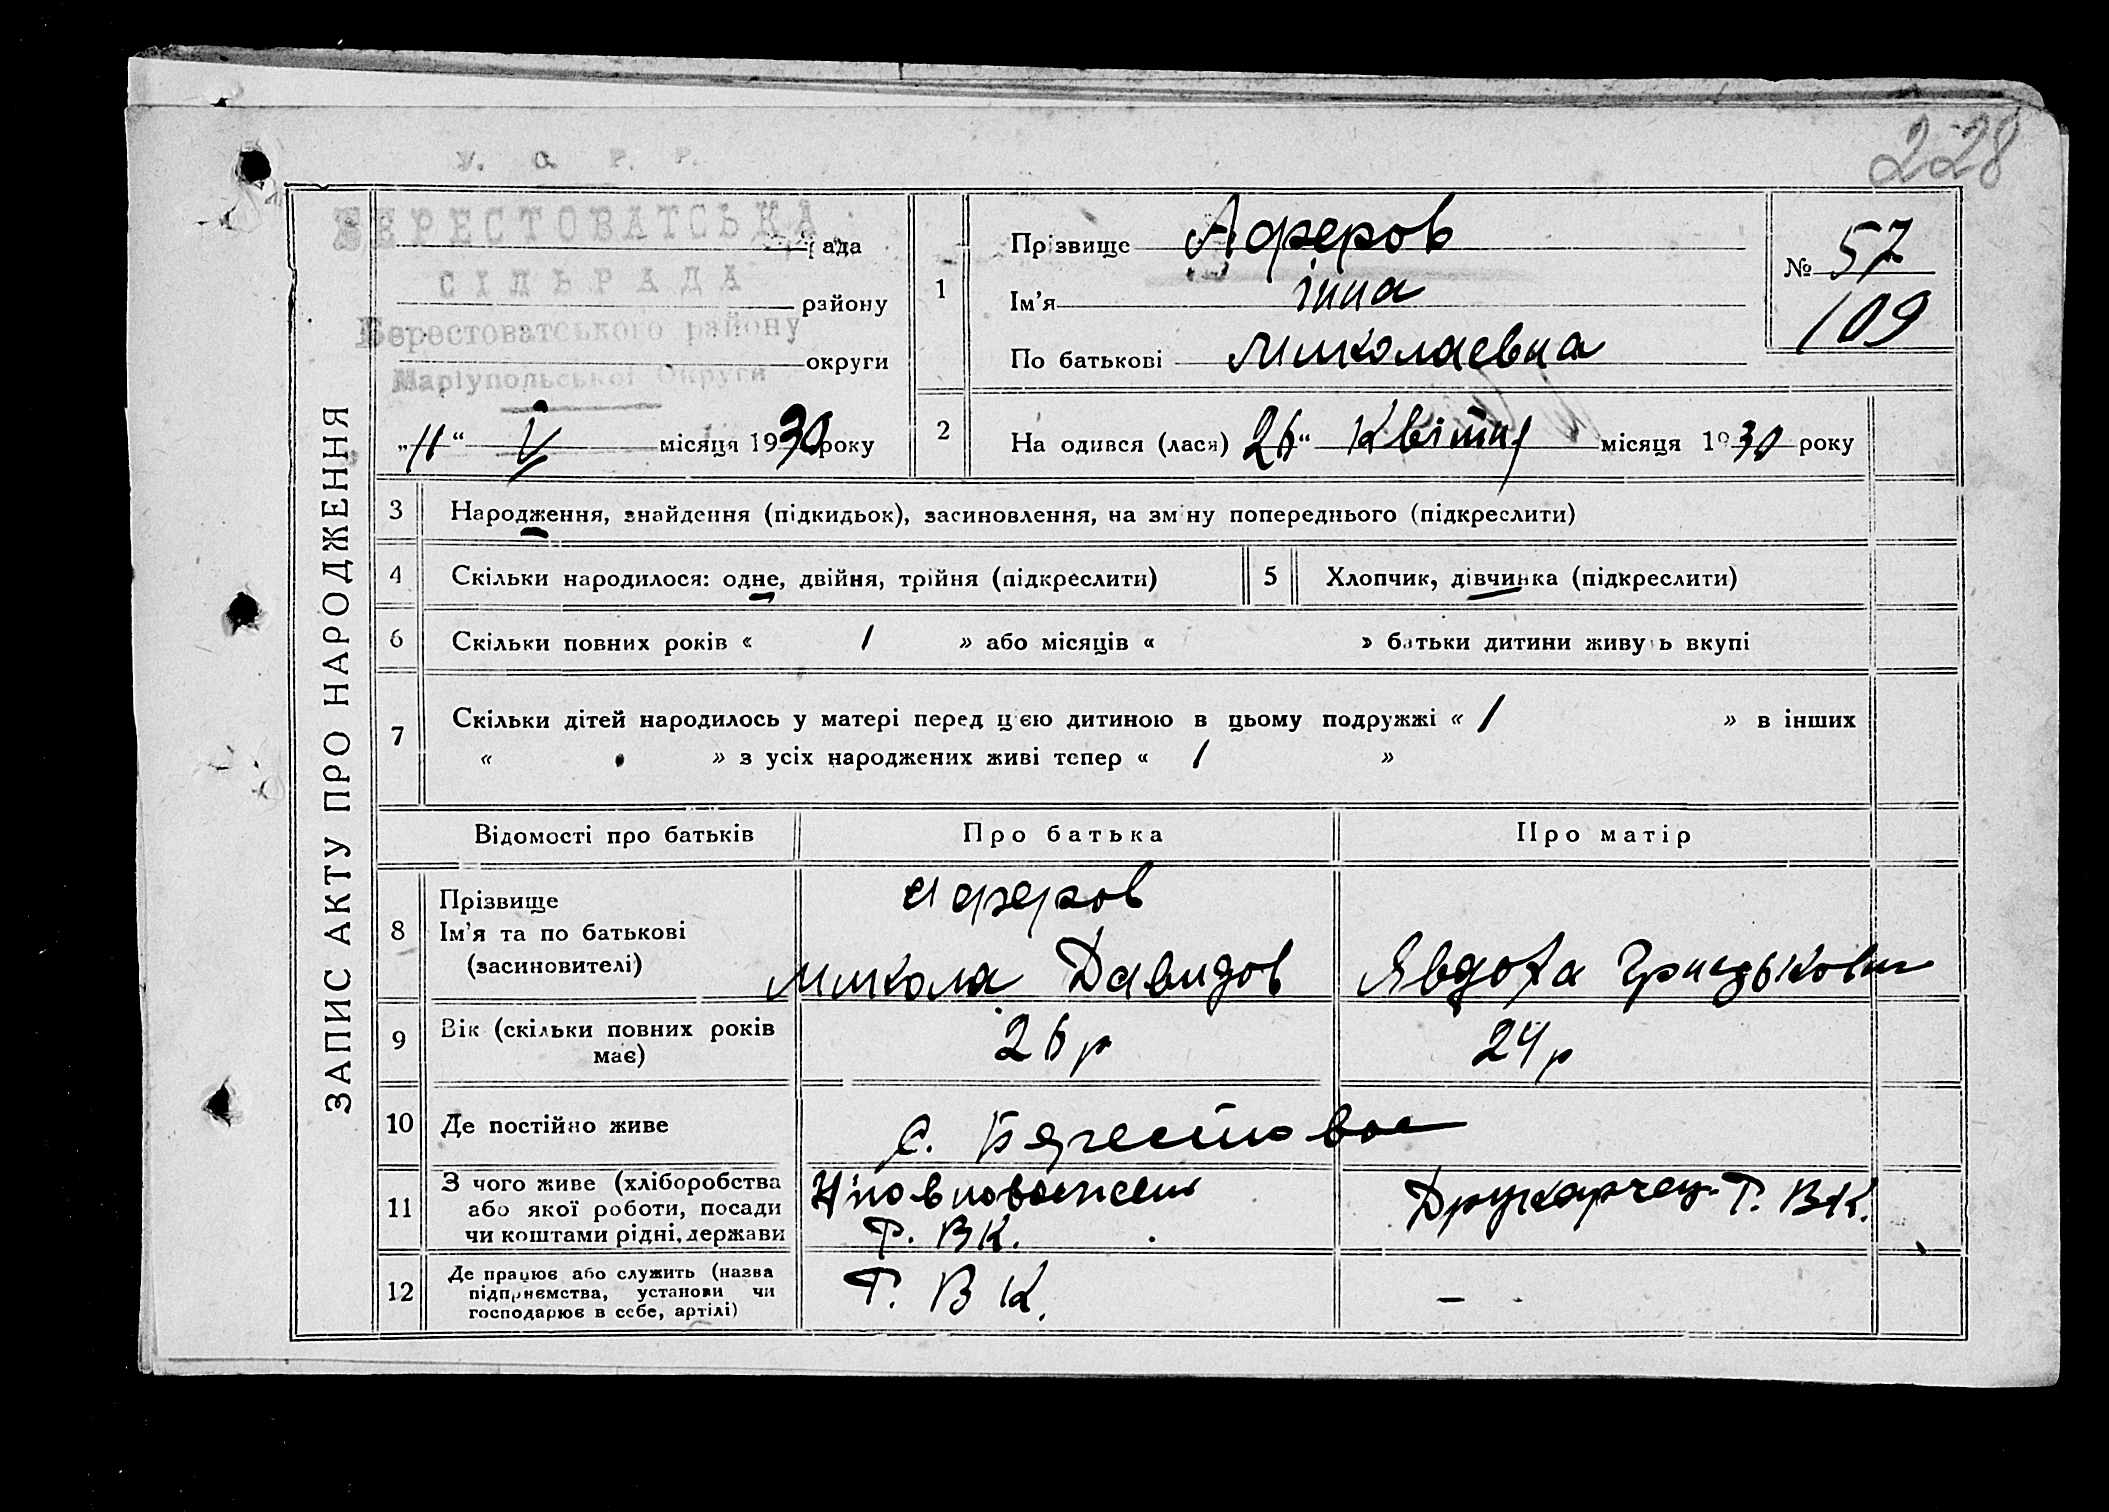 228
У. С. Р. Р.
БЕРЕСТОВАТСЬКА рада
СІЛЬРАДА району
Берестоватського району
округи
Маріупольської Округи
„11“ V місяця 1930 року
ЗАПИС АКТУ ПРО НАРОДЖЕННЯ
1 Прізвище Аферов
Ім’я Інна
По батькові Миколаевна
№ 57
109
2 Народився (лася) 26“ Квітня місяця 1930 року
3 Народження, знайдення (підкидьок), засиновлення, на зміну попереднього (підкреслити)
4 Скільки народилося: одне, двійня, трійня (підкреслити) 5 Хлопчик, дівчинка (підкреслити)
6 Скільки повних років « 1 » або місяців « » батьки дитини живуть вкупі
7 Скільки дітей народилось у матері перед цією дитиною в цьому подружжі « 1 » в інших
« » з усіх народжених живі тепер « 1 »
Відомості про батьків Про батька Про матір
8 Прізвище Аферов
Ім’я та по батькові
(засиновителі) Микола Давидов Явдоха
9 Вік (скільки повних років має) 26 р 24 р
10 Де постійно живе с. Берестовое
11 З чого живе (хліборобства
або якої роботи, посади
чи коштами рідні, держави
Р. В К. Р. ВК.
12 Де працює або служить (назва
підприємства, установи чи
господарює в себе, артілі) Р. В К. –